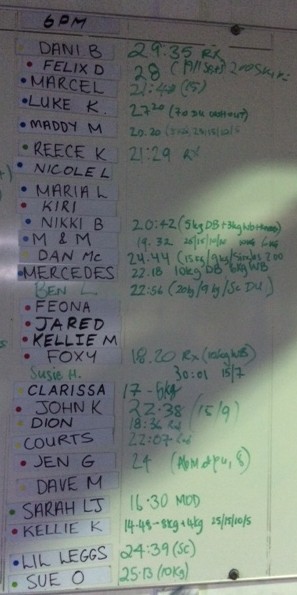 6PM
DANI B 29:35 Rx
FELIX D 28
MARCEL 21:40 (15)
LUKE K 27:20
MADDY M 20.20
REECE K 21:29 Rx
NICOLE L
MARIA L
KIRI
NIKKI B 20:42 (5kg DB +
M & M 19.32 20/15/10/
DAN MC 24.44 (15kg/9kg/
MERCEDES 22.18 10kg DB 6kg WB
BEN L 22:56 (20kg/9kg/Sc DU)
FEONA
JARED
KELLIE M
FOXY 18.20 Rx (10kg WB)
Susie H. 30:01 15/7
CLARISSA 17 - 6kg
JOHN K 22:38 (15/9)
DION 18:36 Rx
COURTS 22:07
JEN G 24
DAVE M
SARAH LJ 16.30 MOD
KELLIE K 14.48 - 8kg + 4kg 25/15/10/5
LIL LEGGS 24:39 (Sc)
SUE O 25:13 (10kg)